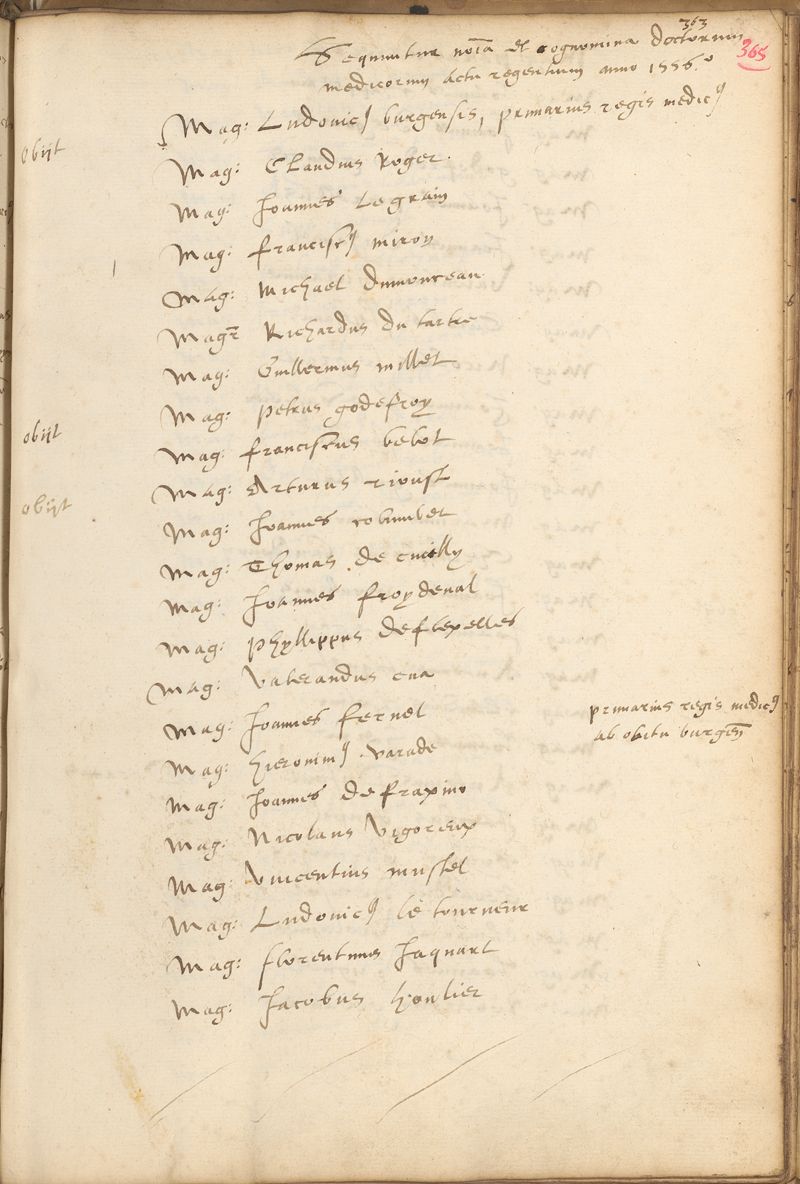 363
365
Sequuntur noĩa et cognomina doctorum
medicorum actu regentium anno 1556.º
obijt
Mag: Ludovicꝰ burgensis, primarius regis medicꝰ
Mag: Claudius Roger.
Mag: Joannes Legrain
Mag: franciscꝰ miron
Mag: Michael Dumonceau
Magr̃ Richardus Du tartre
Mag: Guillermus millet
Mag: petrus godefroy
obijt
Mag: franciscus bebot
Mag: Arturus
obijt
Mag: Joannes columbet
Mag: Thomas de cuilly
Mag: Joannes froydeval
Mag: Phyllippus deflexelles
Mag: Valerandus
Mag: Joannes fernel
primarius regis medicꝰ
ab obitu burgeñ
Mag: hieronimꝰ varade
Mag: Joannes de fraxino
Mag: Nicolaus Vigoreux
Mag: Vincentius mustel
Mag: Ludovicꝰ le tourneur
Mag: florentinus Jaquart
Mag: Jacobus houlier